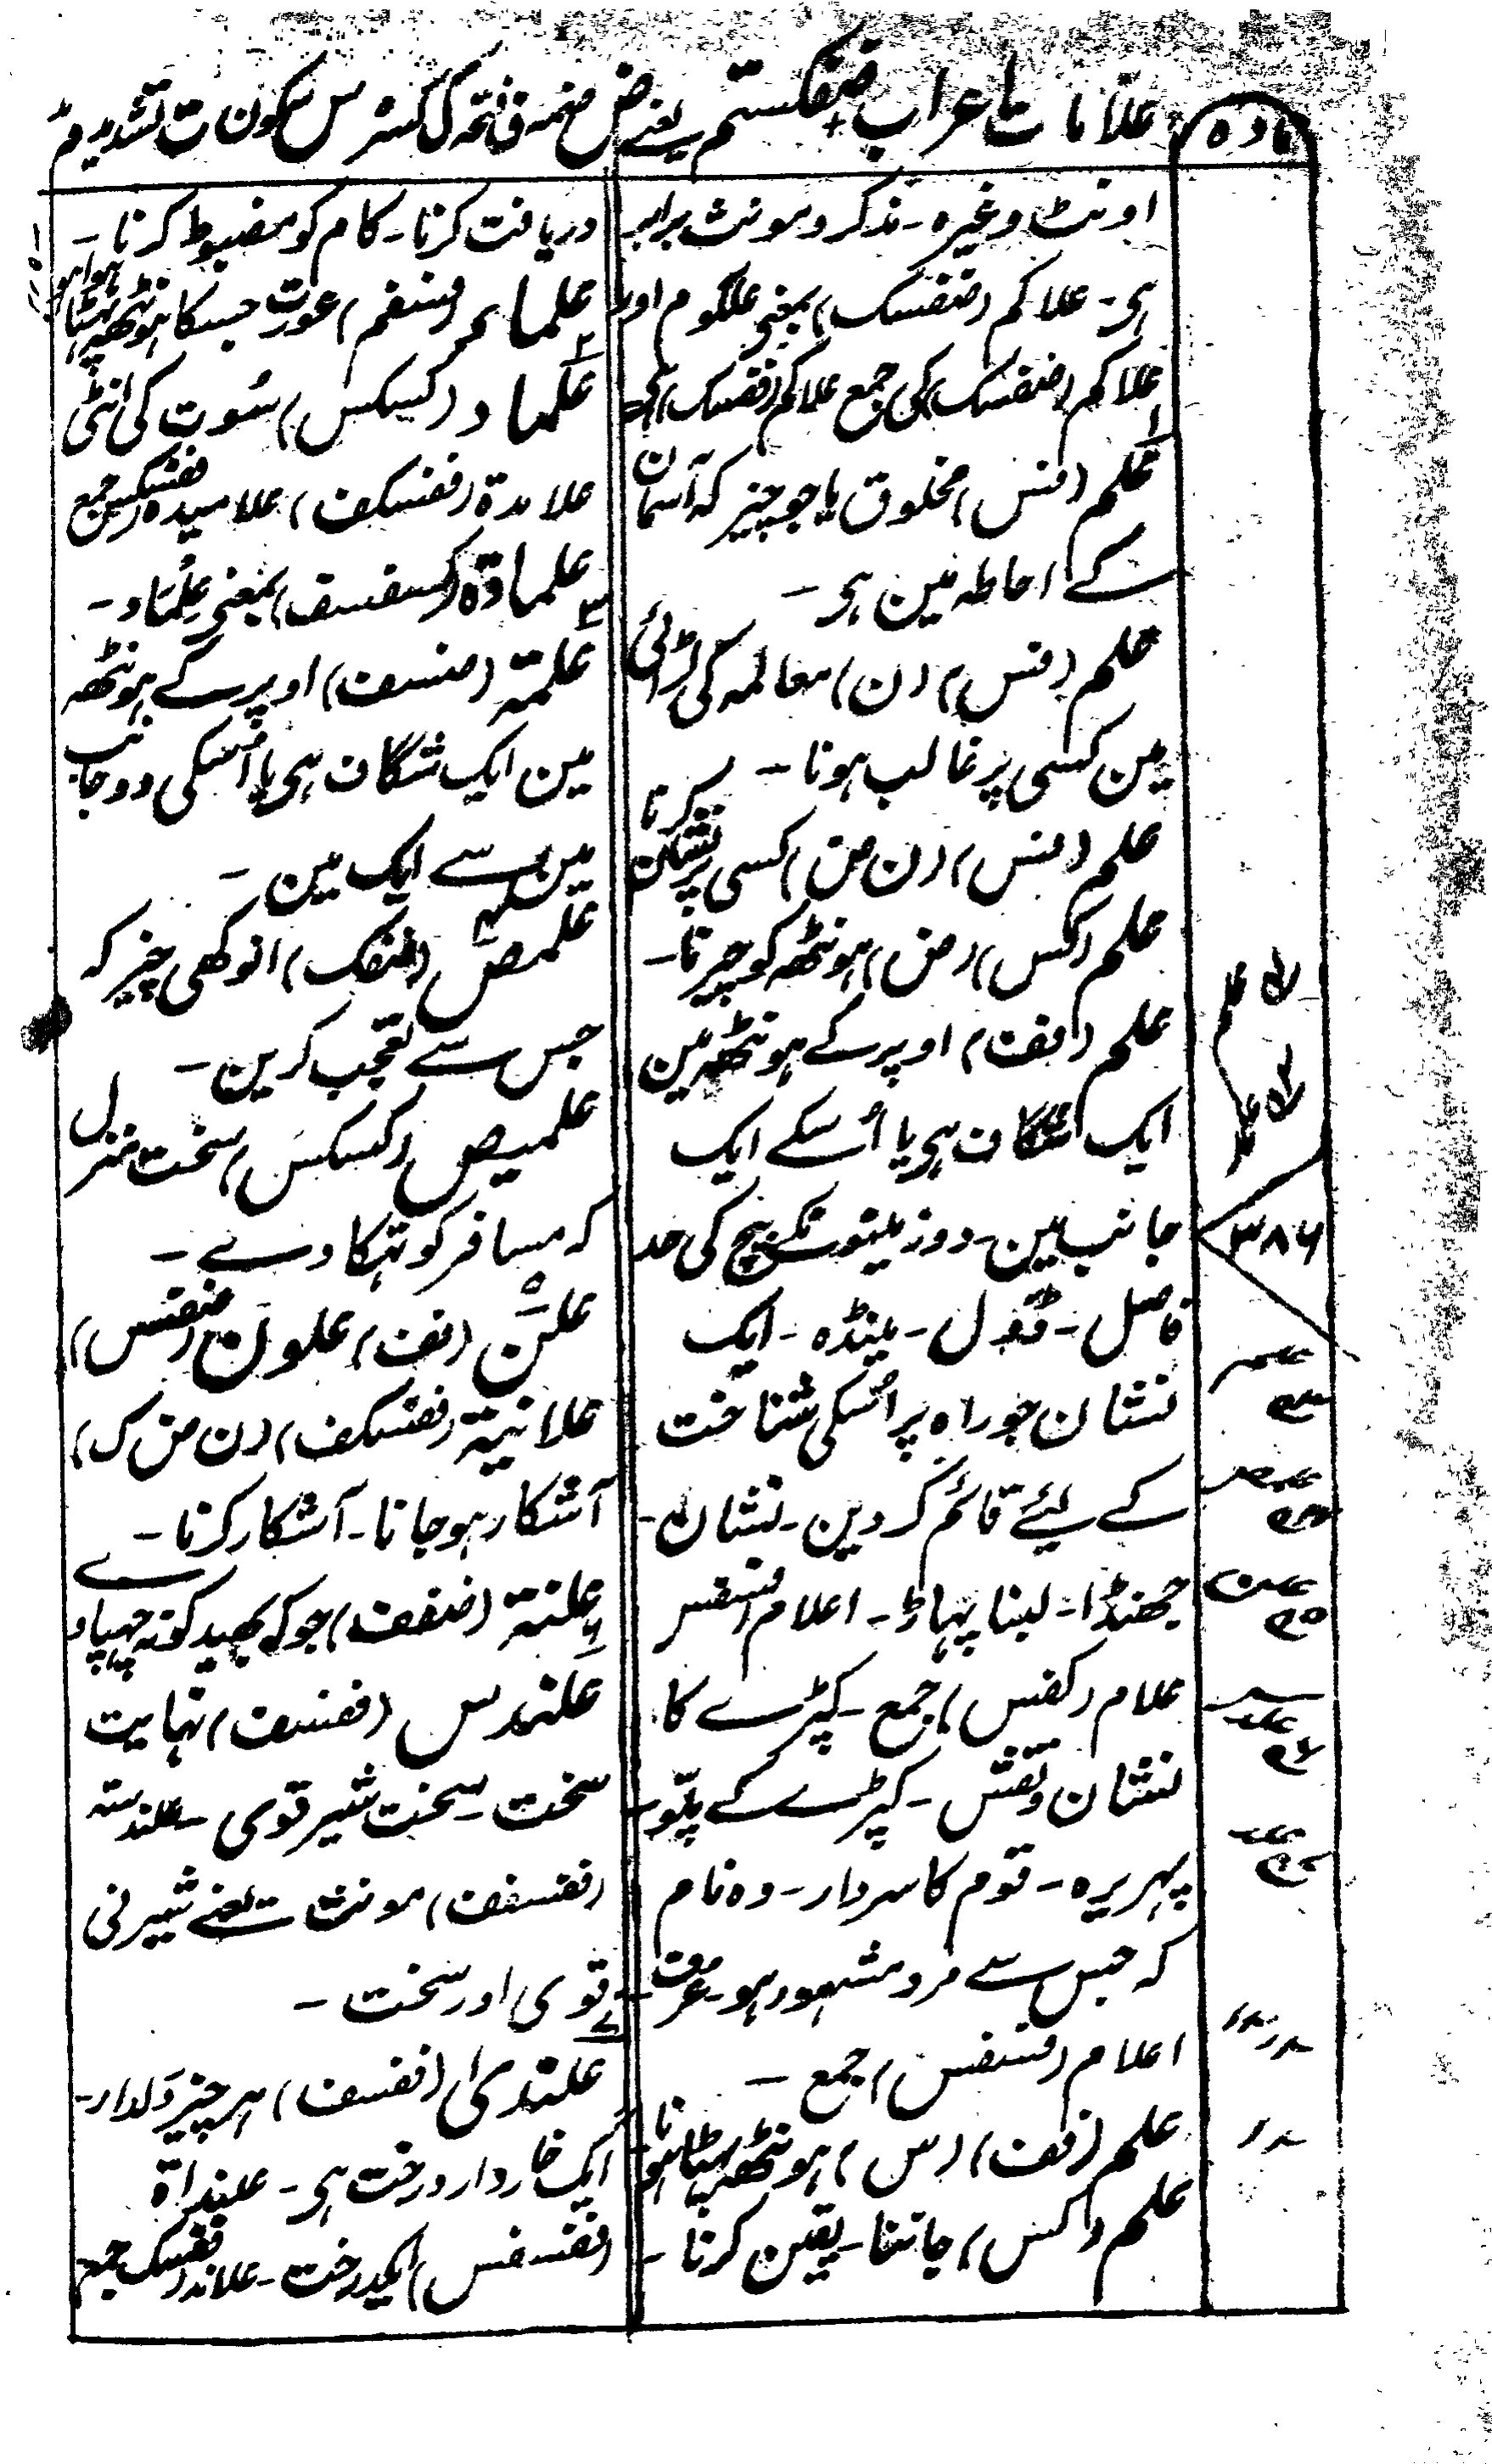 مادہ
علامات اعراب ضفکستم یعنے ض ضمہ ف فتحہ ک کسرہ س سکون ت تشدید م
اونٹ وغیرہ۔ مذکر و مونث برابر
ہی۔ علاکم (ضفسک) بمعنی علکوم اور
علاکم (ضفسک) کی جمع علاکم (ففسک) ہی
علم (فس) مخلوق یا جو چیز کہ آسمان
کے احاطہ مین ہی۔
علم (فس) (ن) معاملہ کی لڑائی
مین کسی پر غالب ہونا۔
علم (فس) (ن ض) کسی پر نشان کرنا
علم (کس) (ض) ہونٹھ کو چیرنا۔
علم (فف) اوپر کے ہونٹھ مین
ایک شگاف ہی یا اُسکے ایک
جانب مین۔ دو زمینون کے بیچ کی حد
فاصل۔ ڈول۔ مینڈہ۔ ایک
نشان جو راہ پر اُسکی شناخت
کے لیئے قائم کر دین۔ نشان۔
جھنڈا۔ لبنا پہاڑ۔ اعلام
علام (کفس) جمع۔ کپڑے کا
نشان و نقش۔ کپڑے کے پلّو۔
پہریرہ۔ قوم کا سردار۔ وہ نام
کہ جس سے مرد مشہور ہو۔ عرف۔
اعلام (فسفس) جمع۔
علم (فف) (س) ہونٹھ پھٹا ہونا
علم (کس) جاننا۔ یقین کرنا۔
دریافت کرنا۔ کام کو مضبوط کرنا۔
علماء (فسفم) عورت جسکا ہونٹھ پھٹا ہوا ہو
علماد (کسکس) سُوت کی انٹی
علامدة (ففسکف) علامیدہ جمع
علمادة (کسفسف) بمعنی عِلمَاد۔
علمة (ضسف) اوپر کے ہونٹھ
مین ایک شگاف ہی یا اُسکی دو جانب
مین سے ایک مین۔
علمص انوکھی چیز کہ
جس سے تعجب کرین۔
علمیص (کسکس) سخت منزل
کہ مسافر کو تہکا دے۔
علن (فف) علون (ضفتس)
علانیة (ففسکف) (ن ض ک)
آشکار ہو جانا۔ آشکار کرنا۔
علنة (ضففف) جو کہ بھید کو نہ چھپاوے
علندس (ففسف) نہایت
سخت۔ سخت شیر قوی۔ علندسة
(ففسفف) مونث یعنے شیرنی
قوی اور سخت۔
علندی (ففسف) ہر چیز دَلدار۔
ایک خاردار درخت ہی۔ علنداة
(ففسفس) ایکدرخت۔ علاند ففسک جمع
علم
۳۸۶